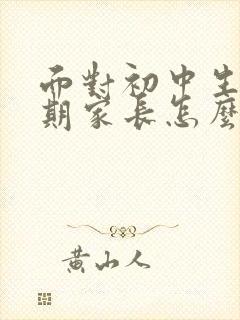 而對初中生
期家長怎麼
黃山人